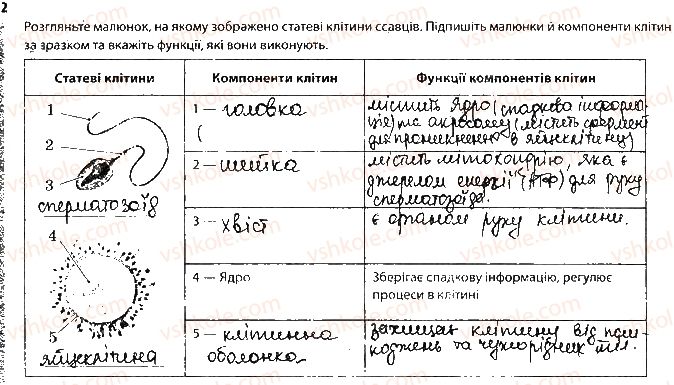 2
Розгляньте малюнок, на якому зображено статеві клітини ссавців. Підпишіть малюнки й компоненти клітин
за зразком та вкажіть функції, які вони виконують.
Статеві клітини Компоненти клітин Функції компонентів клітин
1
2
3
сперматозоїд
4
5
яйцеклітина
1 — головка
містить ядро (спадкова інформа-
ція) та акросому (містить фермент
для проникнення в яйцеклітину)
2 — шийка
містить мітохондрію, яка є
джерелом енергії (АТФ) для руху
сперматозоїда.
3 — хвіст
є органом руху клітини.
4 — Ядро
Зберігає спадкову інформацію, регулює
процеси в клітині
5 — клітинна
оболонка
захищає клітину від пош-
коджень та чужорідних тіл.
vshkole.com